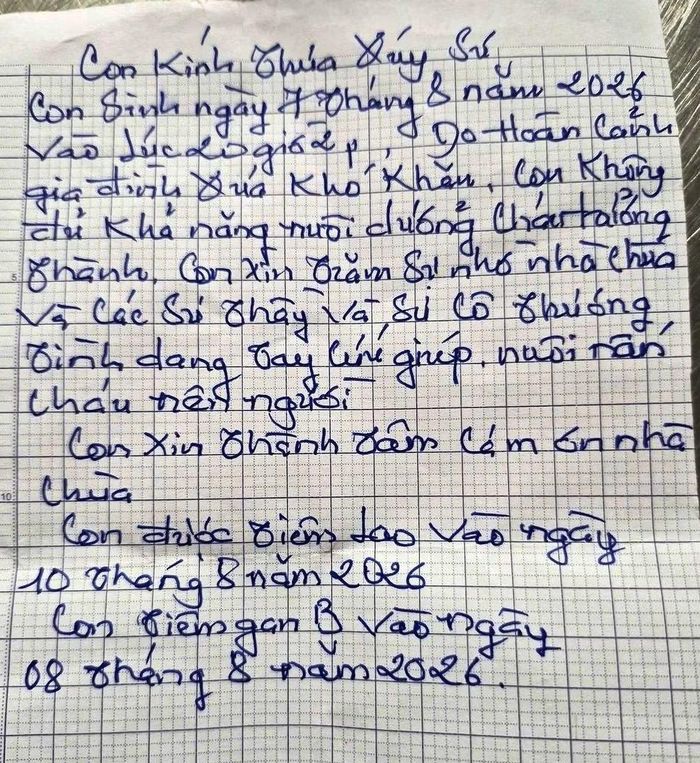 Con Kính Thưa Qúy Sư
Con Sinh ngày 7 tháng 8 năm 2026
vào lúc 20 giờ 2p, Do Hoàn Cảnh
gia đình Quá Khó Khăn, Con Không
đủ Khả năng nuôi dưỡng Cháu trưởng
thành, Con xin trăm sự nhờ nhà chùa
và Các Sư thầy và Sư Cô thương
tình dang tay Cứu giúp, nuôi nấn
Cháu nên người
Con xin thành tâm Cảm ơn nhà
Chùa
Con được tiêm lao vào ngày
10 tháng 8 năm 2026
Con tiêm gan B vào ngày
08 tháng 8 năm 2026.
5
10